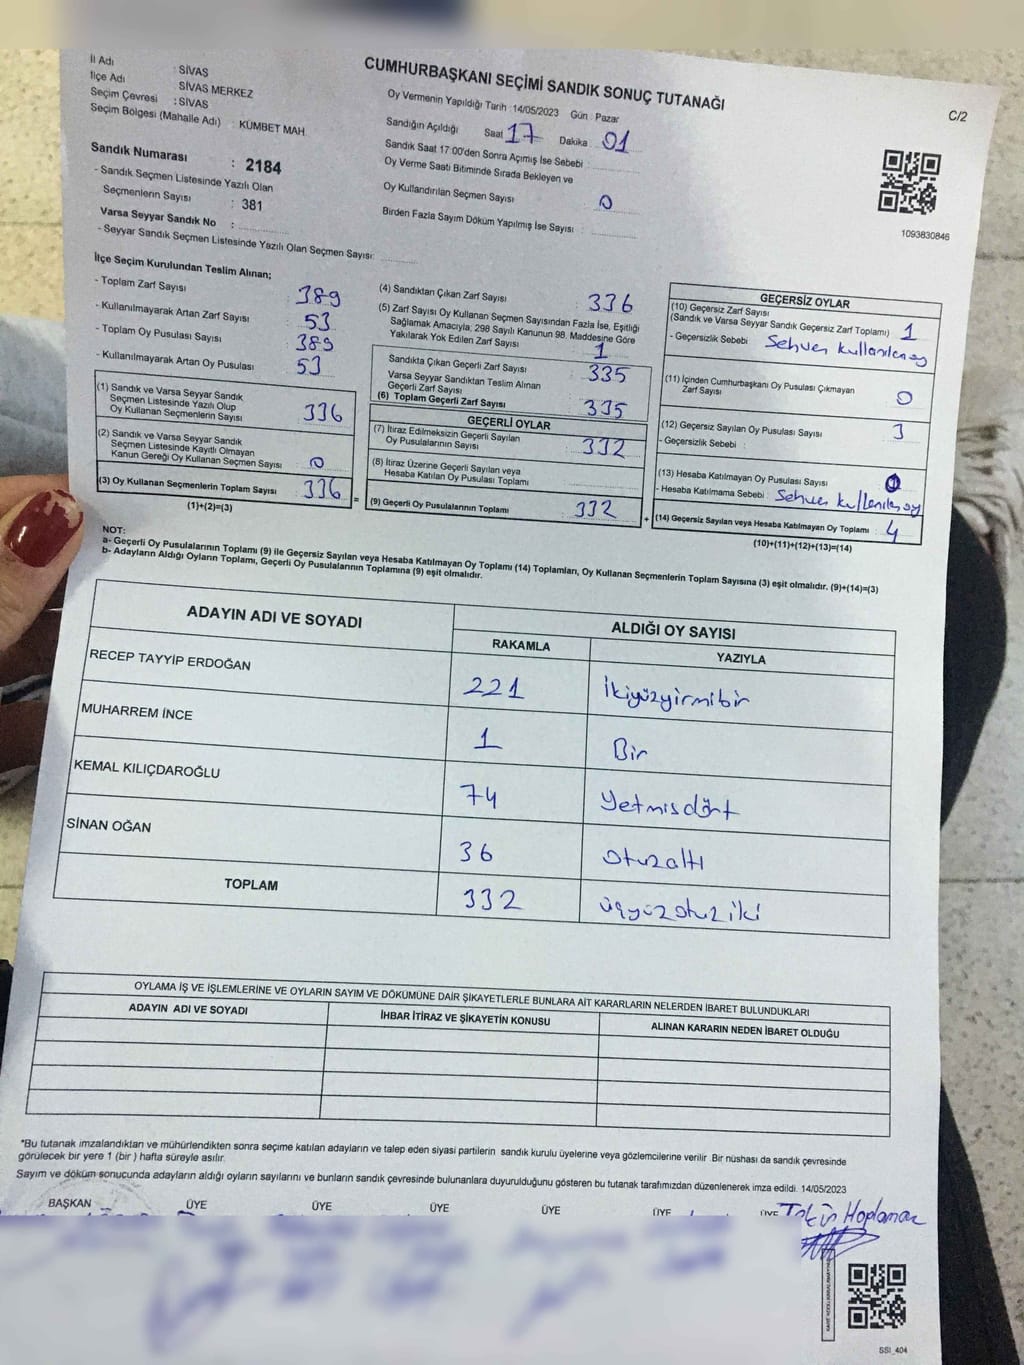 CUMHURBAŞKANI SEÇİMİ SANDIK SONUÇ TUTANAĞI
C/2
İl Adı : SİVAS
İlçe Adı : SİVAS MERKEZ
Seçim Çevresi : SİVAS
Seçim Bölgesi (Mahalle Adı) : KÜMBET MAH
Oy Vermenin Yapıldığı Tarih : 14/05/2023 Gün : Pazar
Sandığın Açıldığı Saat 17 Dakika : 01
Sandık Saat 17:00'den Sonra Açılmış İse Sebebi :
Oy Verme Saati Bitiminde Sırada Bekleyen ve
Oy Kullandırılan Seçmen Sayısı : 0
Birden Fazla Sayım Döküm Yapılmış İse Sayısı :
1093830846
Sandık Numarası : 2184
- Sandık Seçmen Listesinde Yazılı Olan
Seçmenlerin Sayısı : 381
Varsa Seyyar Sandık No :
- Seyyar Sandık Seçmen Listesinde Yazılı Olan Seçmen Sayısı:
İlçe Seçim Kurulundan Teslim Alınan;
- Toplam Zarf Sayısı : 389
- Kullanılmayarak Artan Zarf Sayısı : 53
- Toplam Oy Pusulası Sayısı : 389
- Kullanılmayarak Artan Oy Pusulası : 53
(1) Sandık ve Varsa Seyyar Sandık
Seçmen Listesinde Yazılı Olup
Oy Kullanan Seçmenlerin Sayısı : 336
(2) Sandık ve Varsa Seyyar Sandık
Seçmen Listesinde Kayıtlı Olmayan
Kanun Gereği Oy Kullanan Seçmen Sayısı : 0
(3) Oy Kullanan Seçmenlerin Toplam Sayısı : 336
(1)+(2)=(3)
(4) Sandıktan Çıkan Zarf Sayısı : 336
(5) Zarf Sayısı Oy Kullanan Seçmen Sayısından Fazla İse, Eşitliği
Sağlamak Amacıyla; 298 Sayılı Kanunun 98. Maddesine Göre
Yakılarak Yok Edilen Zarf Sayısı : 1
Sandıkta Çıkan Geçerli Zarf Sayısı : 335
Varsa Seyyar Sandıktan Teslim Alınan
Geçerli Zarf Sayısı :
(6) Toplam Geçerli Zarf Sayısı : 335
GEÇERLİ OYLAR
(7) İtiraz Edilmeksizin Geçerli Sayılan
Oy Pusulalarının Sayısı : 332
(8) İtiraz Üzerine Geçerli Sayılan veya
Hesaba Katılan Oy Pusulası Toplamı :
= (9) Geçerli Oy Pusulalarının Toplamı : 332 +
GEÇERSİZ OYLAR
(10) Geçersiz Zarf Sayısı
(Sandık ve Varsa Seyyar Sandık Geçersiz Zarf Toplamı) : 1
- Geçersizlik Sebebi : Sehven kullanılan oy
(11) İçinden Cumhurbaşkanı Oy Pusulası Çıkmayan
Zarf Sayısı : 0
(12) Geçersiz Sayılan Oy Pusulası Sayısı : 3
- Geçersizlik Sebebi :
(13) Hesaba Katılmayan Oy Pusulası Sayısı :
- Hesaba Katılmama Sebebi : Sehven kullanılan oy
(14) Geçersiz Sayılan veya Hesaba Katılmayan Oy Toplamı : 4
(10)+(11)+(12)+(13)=(14)
NOT:
a- Geçerli Oy Pusulalarının Toplamı (9) ile Geçersiz Sayılan veya Hesaba Katılmayan Oy Toplamı (14) Toplamları, Oy Kullanan Seçmenlerin Toplam Sayısına (3) eşit olmalıdır. (9)+(14)=(3)
b- Adayların Aldığı Oyların Toplamı, Geçerli Oy Pusulalarının Toplamına (9) eşit olmalıdır.
ADAYIN ADI VE SOYADI
ALDIĞI OY SAYISI
RAKAMLA YAZIYLA
RECEP TAYYİP ERDOĞAN 221 ikiyüzyirmibir
MUHARREM İNCE 1 Bir
KEMAL KILIÇDAROĞLU 74 Yetmisdört
SİNAN OĞAN 36 otuzaltı
TOPLAM 332 üçyüzotuziki
OYLAMA İŞ VE İŞLEMLERİNE VE OYLARIN SAYIM VE DÖKÜMÜNE DAİR ŞİKAYETLERLE BUNLARA AİT KARARLARIN NELERDEN İBARET BULUNDUKLARI
ADAYIN ADI VE SOYADI İHBAR İTİRAZ VE ŞİKAYETİN KONUSU ALINAN KARARIN NEDEN İBARET OLDUĞU
*Bu tutanak imzalandıktan ve mühürlendikten sonra seçime katılan adayların ve talep eden siyasi partilerin sandık kurulu üyelerine veya gözlemcilerine verilir. Bir nüshası da sandık çevresinde
görülecek bir yere 1 (bir ) hafta süreyle asılır.
Sayım ve döküm sonucunda adayların aldığı oyların sayılarını ve bunların sandık çevresinde bulunanlara duyurulduğunu gösteren bu tutanak tarafımızdan düzenlenerek imza edildi. 14/05/2023
BAŞKAN ÜYE ÜYE ÜYE ÜYE ÜYE ÜYE
Hoplamaz
SSI_404